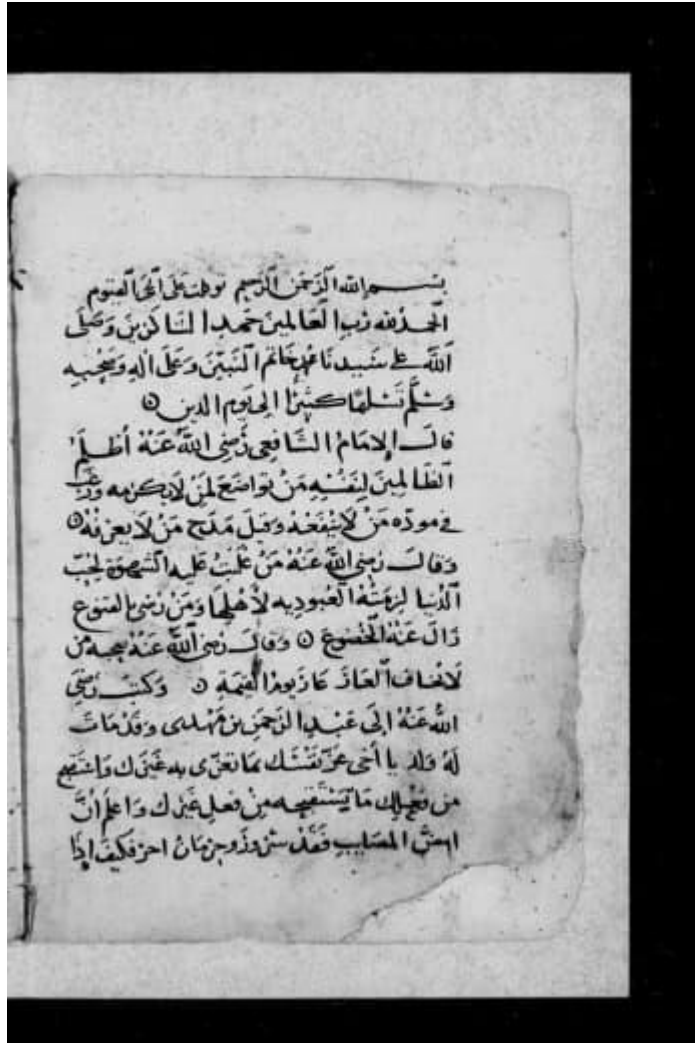 بسم الله الرحمن الرحيم توكلت على الحي القيوم
الحمد لله رب العالمين حمد الشاكرين وصلى
الله على سيدنا محمد خاتم النبيين وعلى اله وصحبه
وسلم تسليما كثيرا الى يوم الدين
قال الامام الشافعي رضي الله عنه أظلم
الظالمين لنفسه من تواضع لمن لا يكرمه ورغب
في مودة من لا ينفعه وقبل مدح من لا يعرفه
وقال رضي الله عنه من غلبت عليه الشهوة لحب
الدنيا لزمته العبودية لأهلها ومن رضي بالقنوع
زال عنه الخضوع وقال رضي الله عنه من
لا يخاف العار عار يوم القيمة وكتب رضي
الله عنه إلى عبد الرحمن بن مهدي وقد مات
له ولد يا أخي عز نفسك بما تعزي به غيرك واستقبح
من فعلك ما يستقبحه من فعل غيرك واعلم أن
امض المصايب فقد سرور وحرمان اجر فكيف إذا